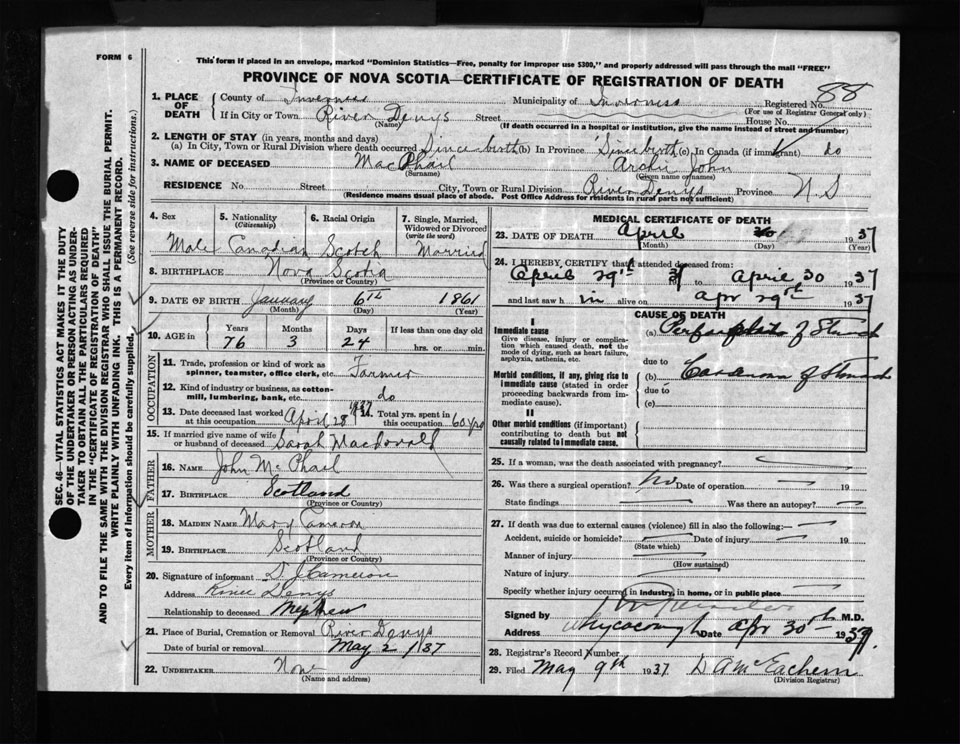 FORM 6
This form if placed in an envelope, marked "Dominion Statistics—Free, penalty for improper use $300," and properly addressed will pass through the mail "FREE"
PROVINCE OF NOVA SCOTIA—CERTIFICATE OF REGISTRATION OF DEATH
SEC. 46—VITAL STATISTICS ACT MAKES IT THE DUTY
OF THE UNDERTAKER OR PERSON ACTING AS UNDER-
TAKER TO OBTAIN ALL THE PARTICULARS REQUIRED
IN THE "CERTIFICATE OF REGISTRATION OF DEATH"
AND TO FILE THE SAME WITH THE DIVISION REGISTRAR WHO SHALL ISSUE THE BURIAL PERMIT.
WRITE PLAINLY WITH UNFADING INK. THIS IS A PERMANENT RECORD.
Every item of information should be carefully supplied. (See reverse side for instructions.)
1. PLACE OF DEATH County of Inverness Municipality of Inverness Registered No. 88
(For use of Registrar General only)
If in City or Town River Denys Street House No.
(Name) (If death occurred in a hospital or institution, give the name instead of street and number)
2. LENGTH OF STAY (in years, months and days)
(a) In City, Town or Rural Division where death occurred Since birth (b) In Province Since birth (c) In Canada (if immigrant) do
3. NAME OF DECEASED MacPhail Archie John
(Surname) (Given name or names)
RESIDENCE No. Street City, Town or Rural Division River Denys Province N.S
(Residence means usual place of abode. Post Office Address for residents in rural parts not sufficient)
4. Sex 5. Nationality (Citizenship) 6. Racial Origin 7. Single, Married, Widowed or Divorced (write the word)
Male Canadian Scotch Married
8. BIRTHPLACE Nova Scotia
(Province or Country)
9. DATE OF BIRTH January 6th 1861
(Month) (Day) (Year)
10. AGE in Years Months Days If less than one day old
76 3 24 hrs. or min.
OCCUPATION
11. Trade, profession or kind of work as spinner, teamster, office clerk, etc. Farmer
12. Kind of industry or business, as cotton-mill, lumbering, bank, etc. do
13. Date deceased last worked at this occupation April 28 1937 14. Total yrs. spent in this occupation 60 yrs
15. If married give name of wife or husband of deceased Sarah Macdonald
FATHER
16. NAME John McPhail
17. BIRTHPLACE Scotland
(Province or Country)
MOTHER
18. MAIDEN NAME Mary Cameron
19. BIRTHPLACE Scotland
(Province or Country)
20. Signature of informant D J Cameron
Address River Denys
Relationship to deceased Nephew
21. Place of Burial, Cremation or Removal River Denys
Date of burial or removal May 2 / 37
22. UNDERTAKER None
(Name and address)
MEDICAL CERTIFICATE OF DEATH
23. DATE OF DEATH April 1937
(Month) (Day) (Year)
24. I HEREBY CERTIFY that I attended deceased from:
April 29th 37 to April 30 1937
and last saw him alive on apr 29th 1937
CAUSE OF DEATH
I
Immediate cause
Give disease, injury or complication which caused death, not the mode of dying, such as heart failure, asphyxia, asthenia, etc.
(a) Perforation of Stomach
due to
Morbid conditions, if any, giving rise to immediate cause (stated in order proceeding backwards from immediate cause).
(b) Carcinoma of Stomach
due to
(c)
II
Other morbid conditions (if important) contributing to death but not causally related to immediate cause.
25. If a woman, was the death associated with pregnancy?
26. Was there a surgical operation? No Date of operation
State findings Was there an autopsy?
27. If death was due to external causes (violence) fill in also the following:—
Accident, suicide or homicide? Date of injury 19
(State which)
Manner of injury
(How sustained)
Nature of injury
Specify whether injury occurred in industry, in home, or in public place
Signed by M.D.
Address Whycocomagh Date apr 30th 1937
28. Registrar's Record Number
29. Filed May 9th 1937 D A McEachern
(Division Registrar)